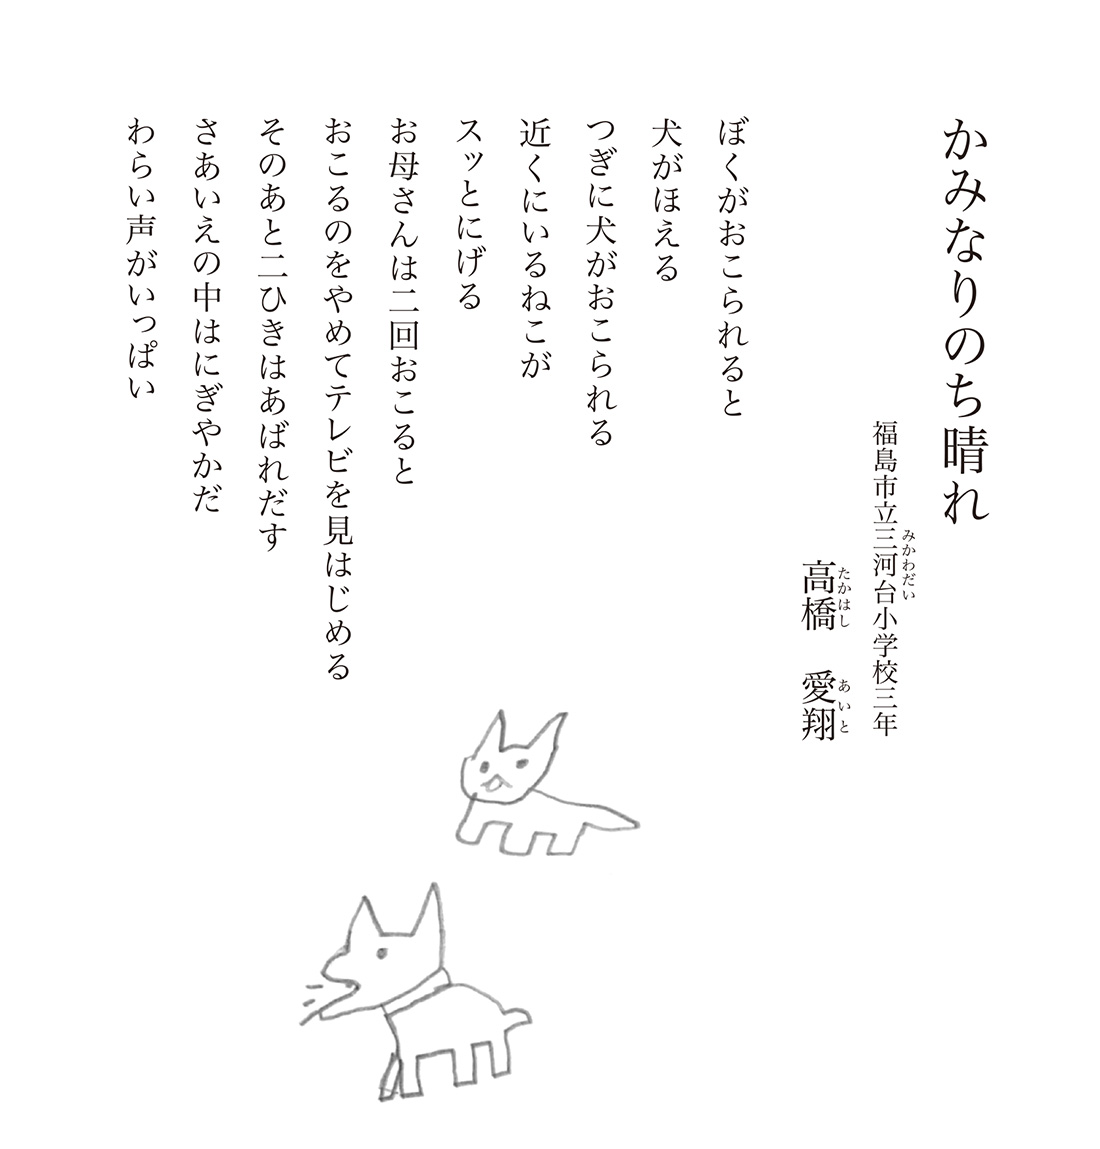 かみなりのち晴れ
福島市立三河台小学校三年
みかわだい
高橋　愛翔
たかはし　あいと
ぼくがおこられると
犬がほえる
つぎに犬がおこられる
近くにいるねこが
スッとにげる
お母さんは二回おこると
おこるのをやめてテレビを見はじめる
そのあと二ひきはあばれだす
さあいえの中はにぎやかだ
わらい声がいっぱい